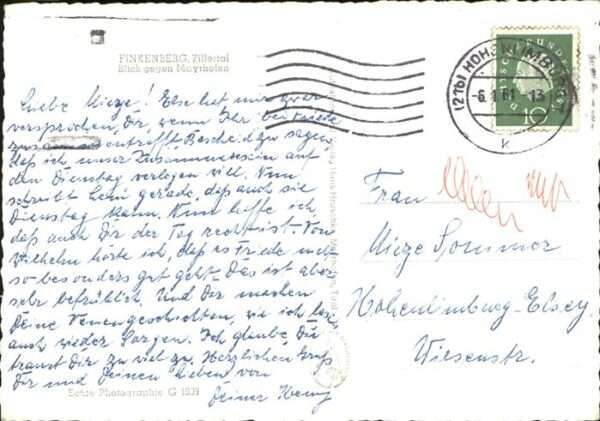 FINKENBERG, Zillertal
Blick gegen Mayrhofen
Liebe Mieze! Else hat mir zwar
versprochen, Dir, wenn Ihr bei Friede
zusammentrefft, Bescheid zu sagen,
daß ich unser Zusammensein auf
den Dienstag verlegen will. Nun
schreibt Leni gerade, daß auch sie
Dienstag kann. Nun hoffe ich,
daß auch Dir der Tag recht ist. Von
Wilhelm hörte ich, daß es Friede nicht
so besonders gut geht. Das ist aber
sehr betrüblich. Und Dir machen
Deine Venengeschichten, wie ich
auch wieder Sorgen. Ich glaube, Du
traust Dir zu viel zu. Herzlichen Gruß
Dir und Deinen Lieben von
Deiner
Echte Photographie G 1539
(21b) HOHENLIMBURG
-6.1.61.-13
k
10
Frau
Mieze Sommer
Hohenlimburg-Elsey
Wiesenstr.